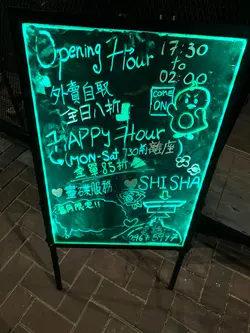 Opening Hour 17:30
to
02:00
外賣自取
全日八折
COME
ON
HAPPY Hour
(MON-Sat 730前離座)
全單85折
SHISHA